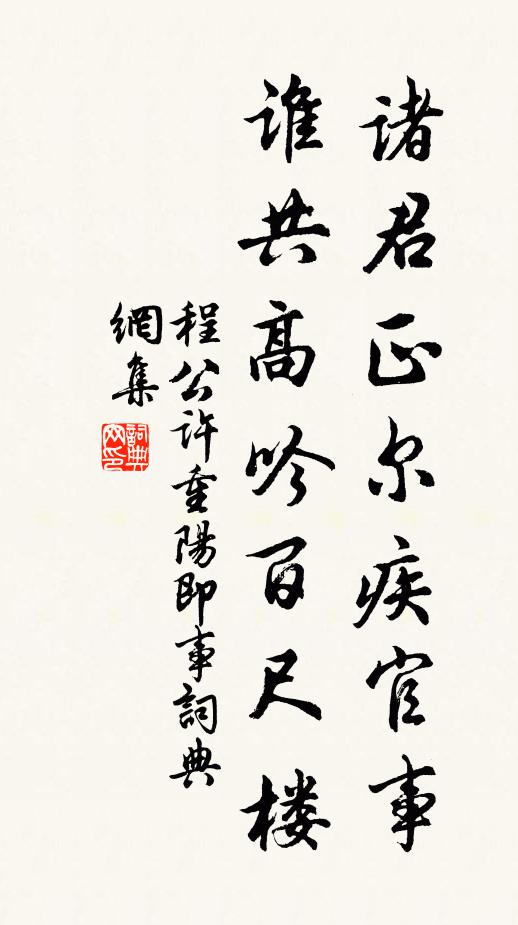 诸君正尔疾官事
谁共高吟百尺楼
程公许重陽即事詞典
網集
詞典
网印